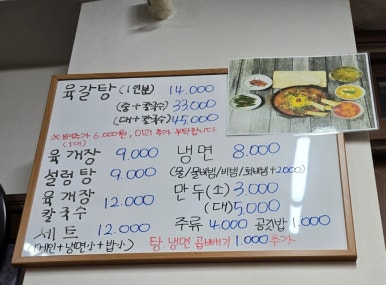 육갈탕 (1인분) 14.000
(중+칼국수) 33000
(대+칼국수) 45.000
6.000원, 미리 추가 부탁합니다.
(1대)
육개장 9.000
설렁탕 9.000
육개장 칼국수 12.000
세트 12.000
(메인+냉면小+밥小)
냉면 8.000
(물/물비빔/비빔/회비빔+2000)
만두(소) 3.000
(대) 5.000
주류 4.000 공깃밥 1.000
탕 냉면 곱빼기 1.000 추가..